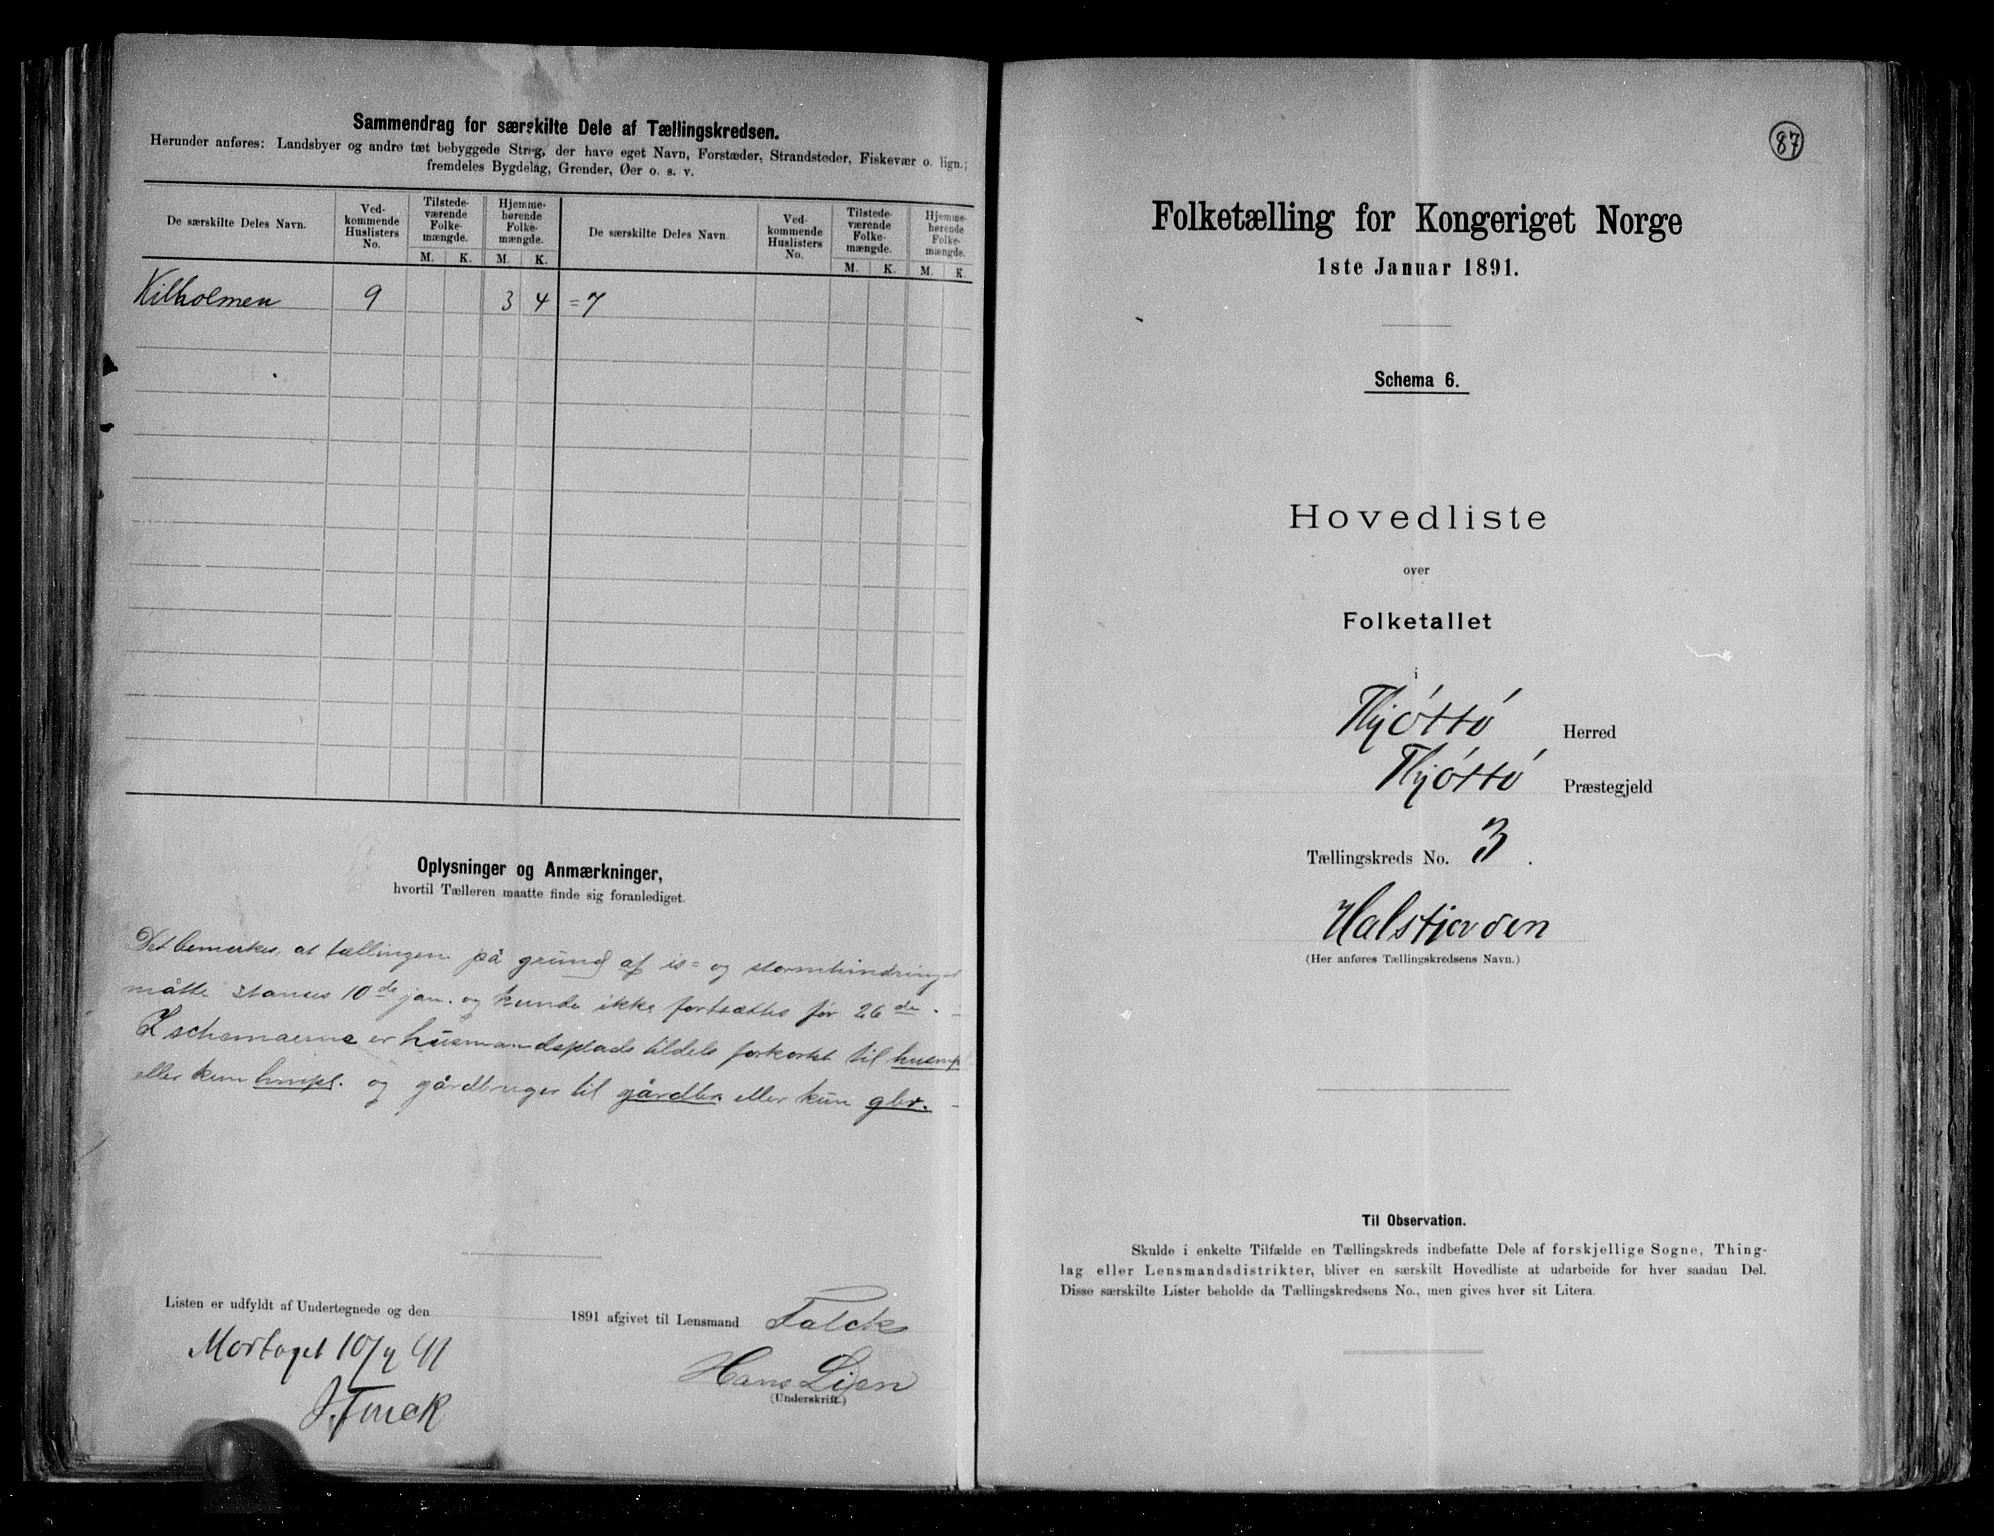 Sammendrag for særskilte Dele af Tællingskredsen.
Herunder anføres: Landsbyer og andre tæt bebyggede Strøg, der have eget Navn, Forstæder, Strandsteder, Fiskevær o. lign.;
fremdeles Bygdelag, Grender, Øer o. s. v.
De særskilte Deles Navn. Ved-kommende Huslisters No. Tilstede-værende Folke-mængde. Hjemme-hørende Folke-mængde. De særskilte Deles Navn. Ved-kommende Huslisters No. Tilstede-værende Folke-mængde. Hjemme-hørende Folke-mængde.
M. K. M. K. M. K. M. K.
Kilholmen 9 3 4 =7
Oplysninger og Anmærkninger,
hvortil Tælleren maatte finde sig foranlediget.
Det bemerkes, at tællingen på grund af is= og stormhindringer
måtte stanses 10de jan. og kunde ikke fortsættes før 26de. -
I schemaerne er husmandsplads tildels forkortet til husmpl
eller kun hmpl. og gårdbruger til gårdbr. eller kun gbr. -
Listen er udfyldt af Undertegnede og den 1891 afgivet til Lensmand Falck
Hans Lien
(Underskrift.)
87
Folketælling for Kongeriget Norge
1ste Januar 1891.
Schema 6.
Hovedliste
over
Folketallet
i
Thjøttø Herred
Thjøttø Præstegjeld
Tællingskreds No. 3.
Halsfjorden
(Her anføres Tællingskredsens Navn.)
Til Observation.
Skulde i enkelte Tilfælde en Tællingskreds indbefatte Dele af forskjellige Sogne, Thing-
lag eller Lensmandsdistrikter, bliver en særskilt Hovedliste at udarbeide for hver saadan Del.
Disse særskilte Lister beholde da Tællingskredsens No., men gives hver sit Litera.